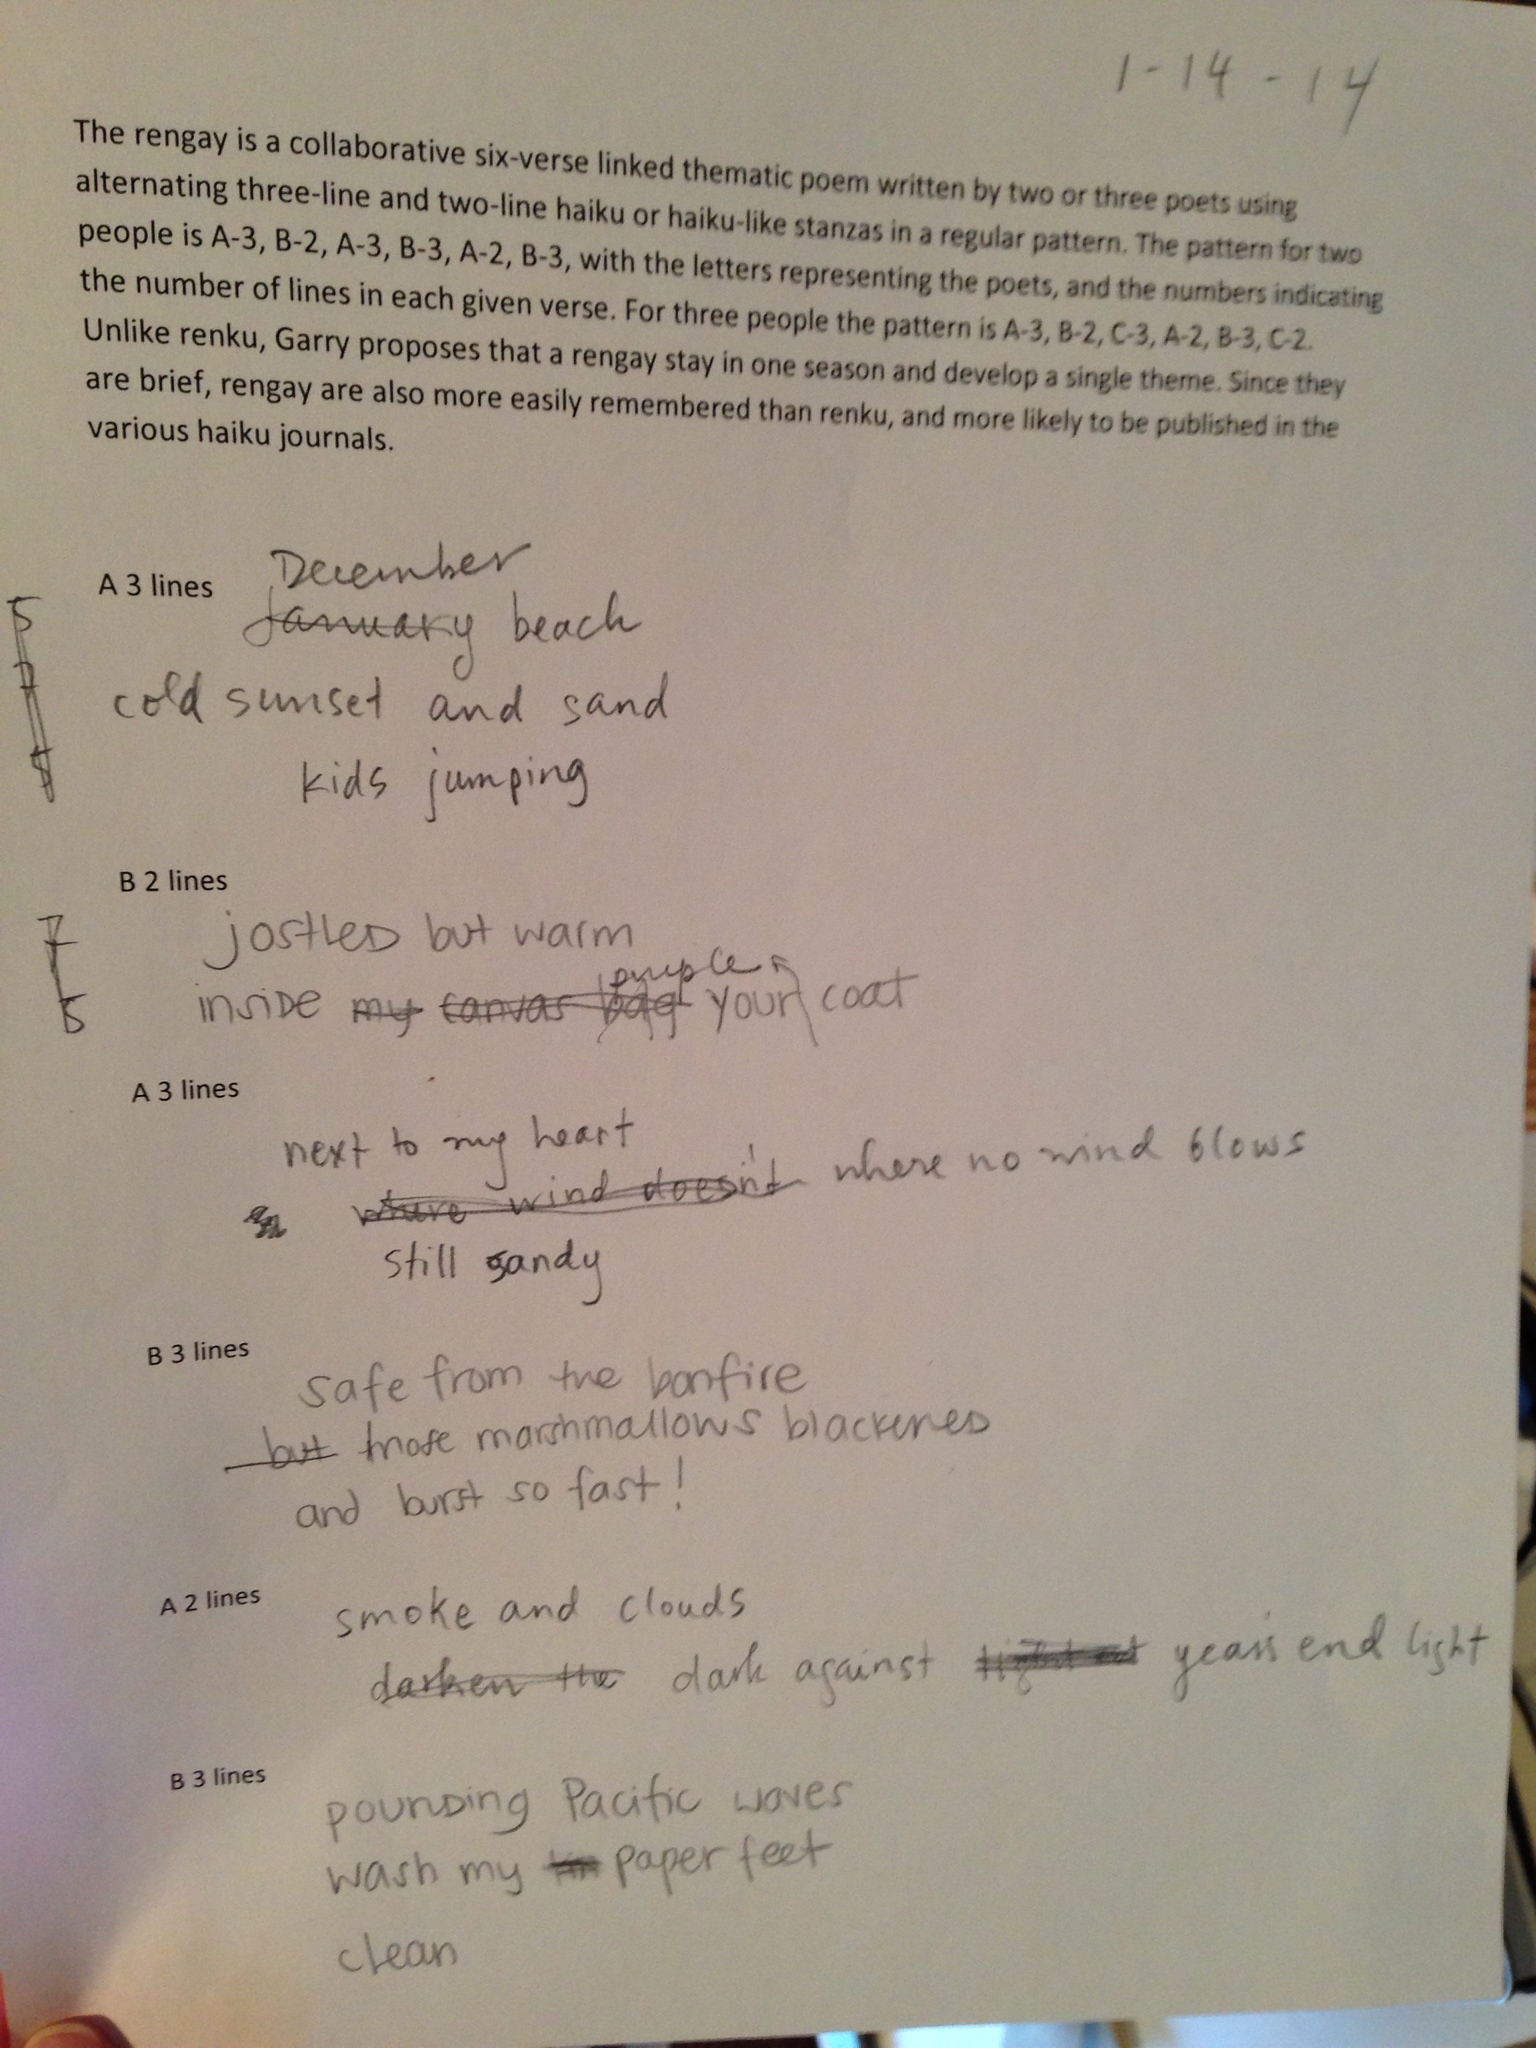 1-14-14
The rengay is a collaborative six-verse linked thematic poem written by two or three poets using
alternating three-line and two-line haiku or haiku-like stanzas in a regular pattern. The pattern for two
people is A-3, B-2, A-3, B-3, A-2, B-3, with the letters representing the poets, and the numbers indicating
the number of lines in each given verse. For three people the pattern is A-3, B-2, C-3, A-2, B-3, C-2.
Unlike renku, Garry proposes that a rengay stay in one season and develop a single theme. Since they
are brief, rengay are also more easily remembered than renku, and more likely to be published in the
various haiku journals.
A 3 lines
December
January beach
5
7
5
cold sunset and sand
kids jumping
B 2 lines
7
5
jostled but warm
purple
inside my canvas bag your coat
A 3 lines
next to my heart
where wind doesn't where no wind blows
still sandy
B 3 lines
safe from the bonfire
but those marshmallows blackened
and burst so fast!
A 2 lines
smoke and clouds
darken the dark against year's end light
B 3 lines
pounding Pacific waves
wash my paper feet
clean